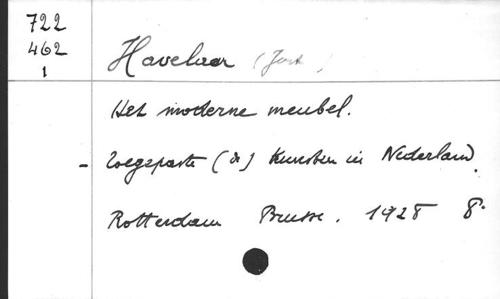 722
462
1
Havelaar (Just )
Het moderne meubel.
- Toegepaste (de) Kunsten in Nederland.
Rotterdam Brusse. 1928 8°